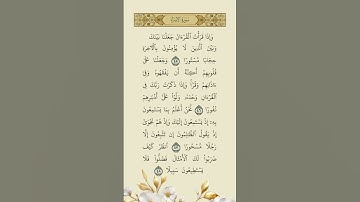 سورة الإسراء
وَإِذَا قَرَأْتَ ٱلْقُرْءَانَ جَعَلْنَا بَيْنَكَ
وَبَيْنَ ٱلَّذِينَ لَا يُؤْمِنُونَ بِٱلْـَٔاخِرَةِ
حِجَابًا مَّسْتُورًا ٤٥ وَجَعَلْنَا عَلَىٰ
قُلُوبِهِمْ أَكِنَّةً أَن يَفْقَهُوهُ وَفِىٓ
ءَاذَانِهِمْ وَقْرًا وَإِذَا ذَكَرْتَ رَبَّكَ فِى
ٱلْقُرْءَانِ وَحْدَهُۥ وَلَّوْا۟ عَلَىٰٓ أَدْبَـٰرِهِمْ
نُفُورًا ٤٦ نَّحْنُ أَعْلَمُ بِمَا يَسْتَمِعُونَ
بِهِۦٓ إِذْ يَسْتَمِعُونَ إِلَيْكَ وَإِذْ هُمْ نَجْوَىٰٓ
إِذْ يَقُولُ ٱلظَّـٰلِمُونَ إِن تَتَّبِعُونَ إِلَّا
رَجُلًا مَّسْحُورًا ٤٧ ٱنظُرْ كَيْفَ
ضَرَبُوا۟ لَكَ ٱلْأَمْثَالَ فَضَلُّوا۟ فَلَا
يَسْتَطِيعُونَ سَبِيلًا ٤٨